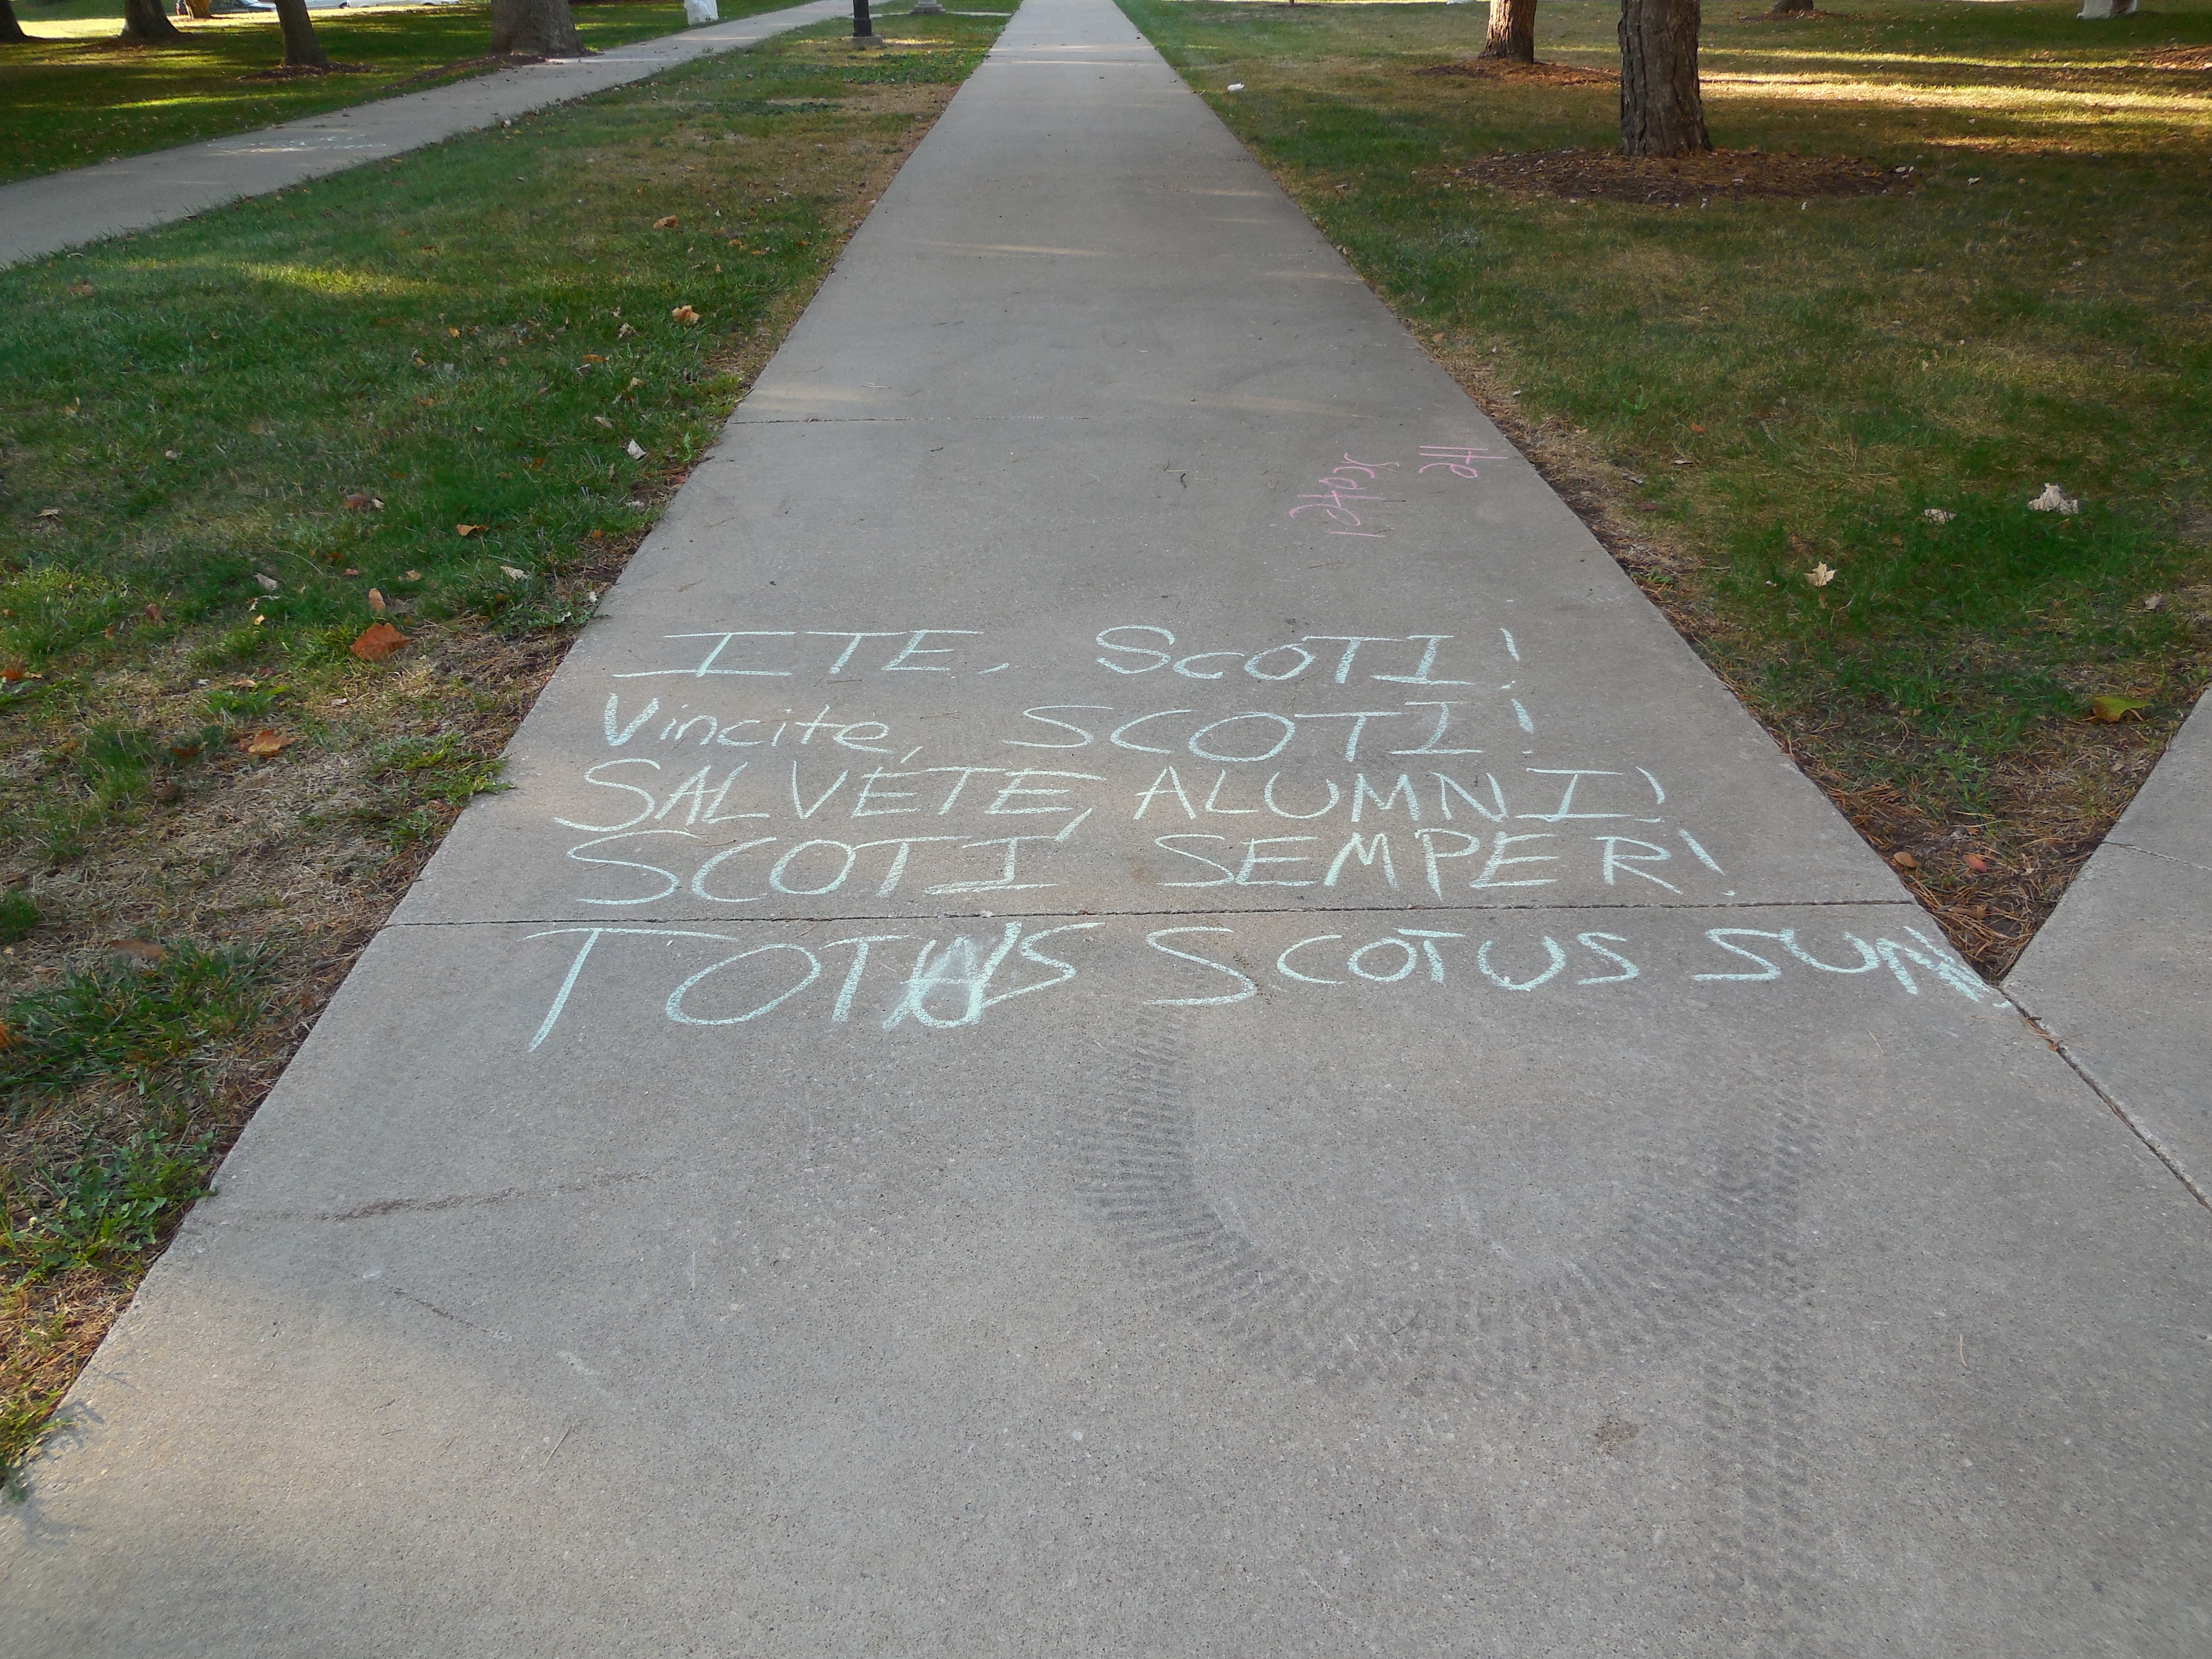 ITE, SCOTI!
Vincite, SCOTI!
SALVETE, ALUMNI!
SCOTI SEMPER!
TOTUS SCOTUS SUM